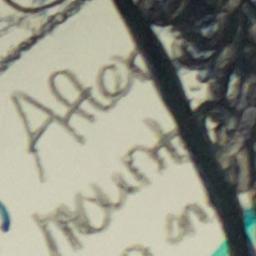 After
mount
on